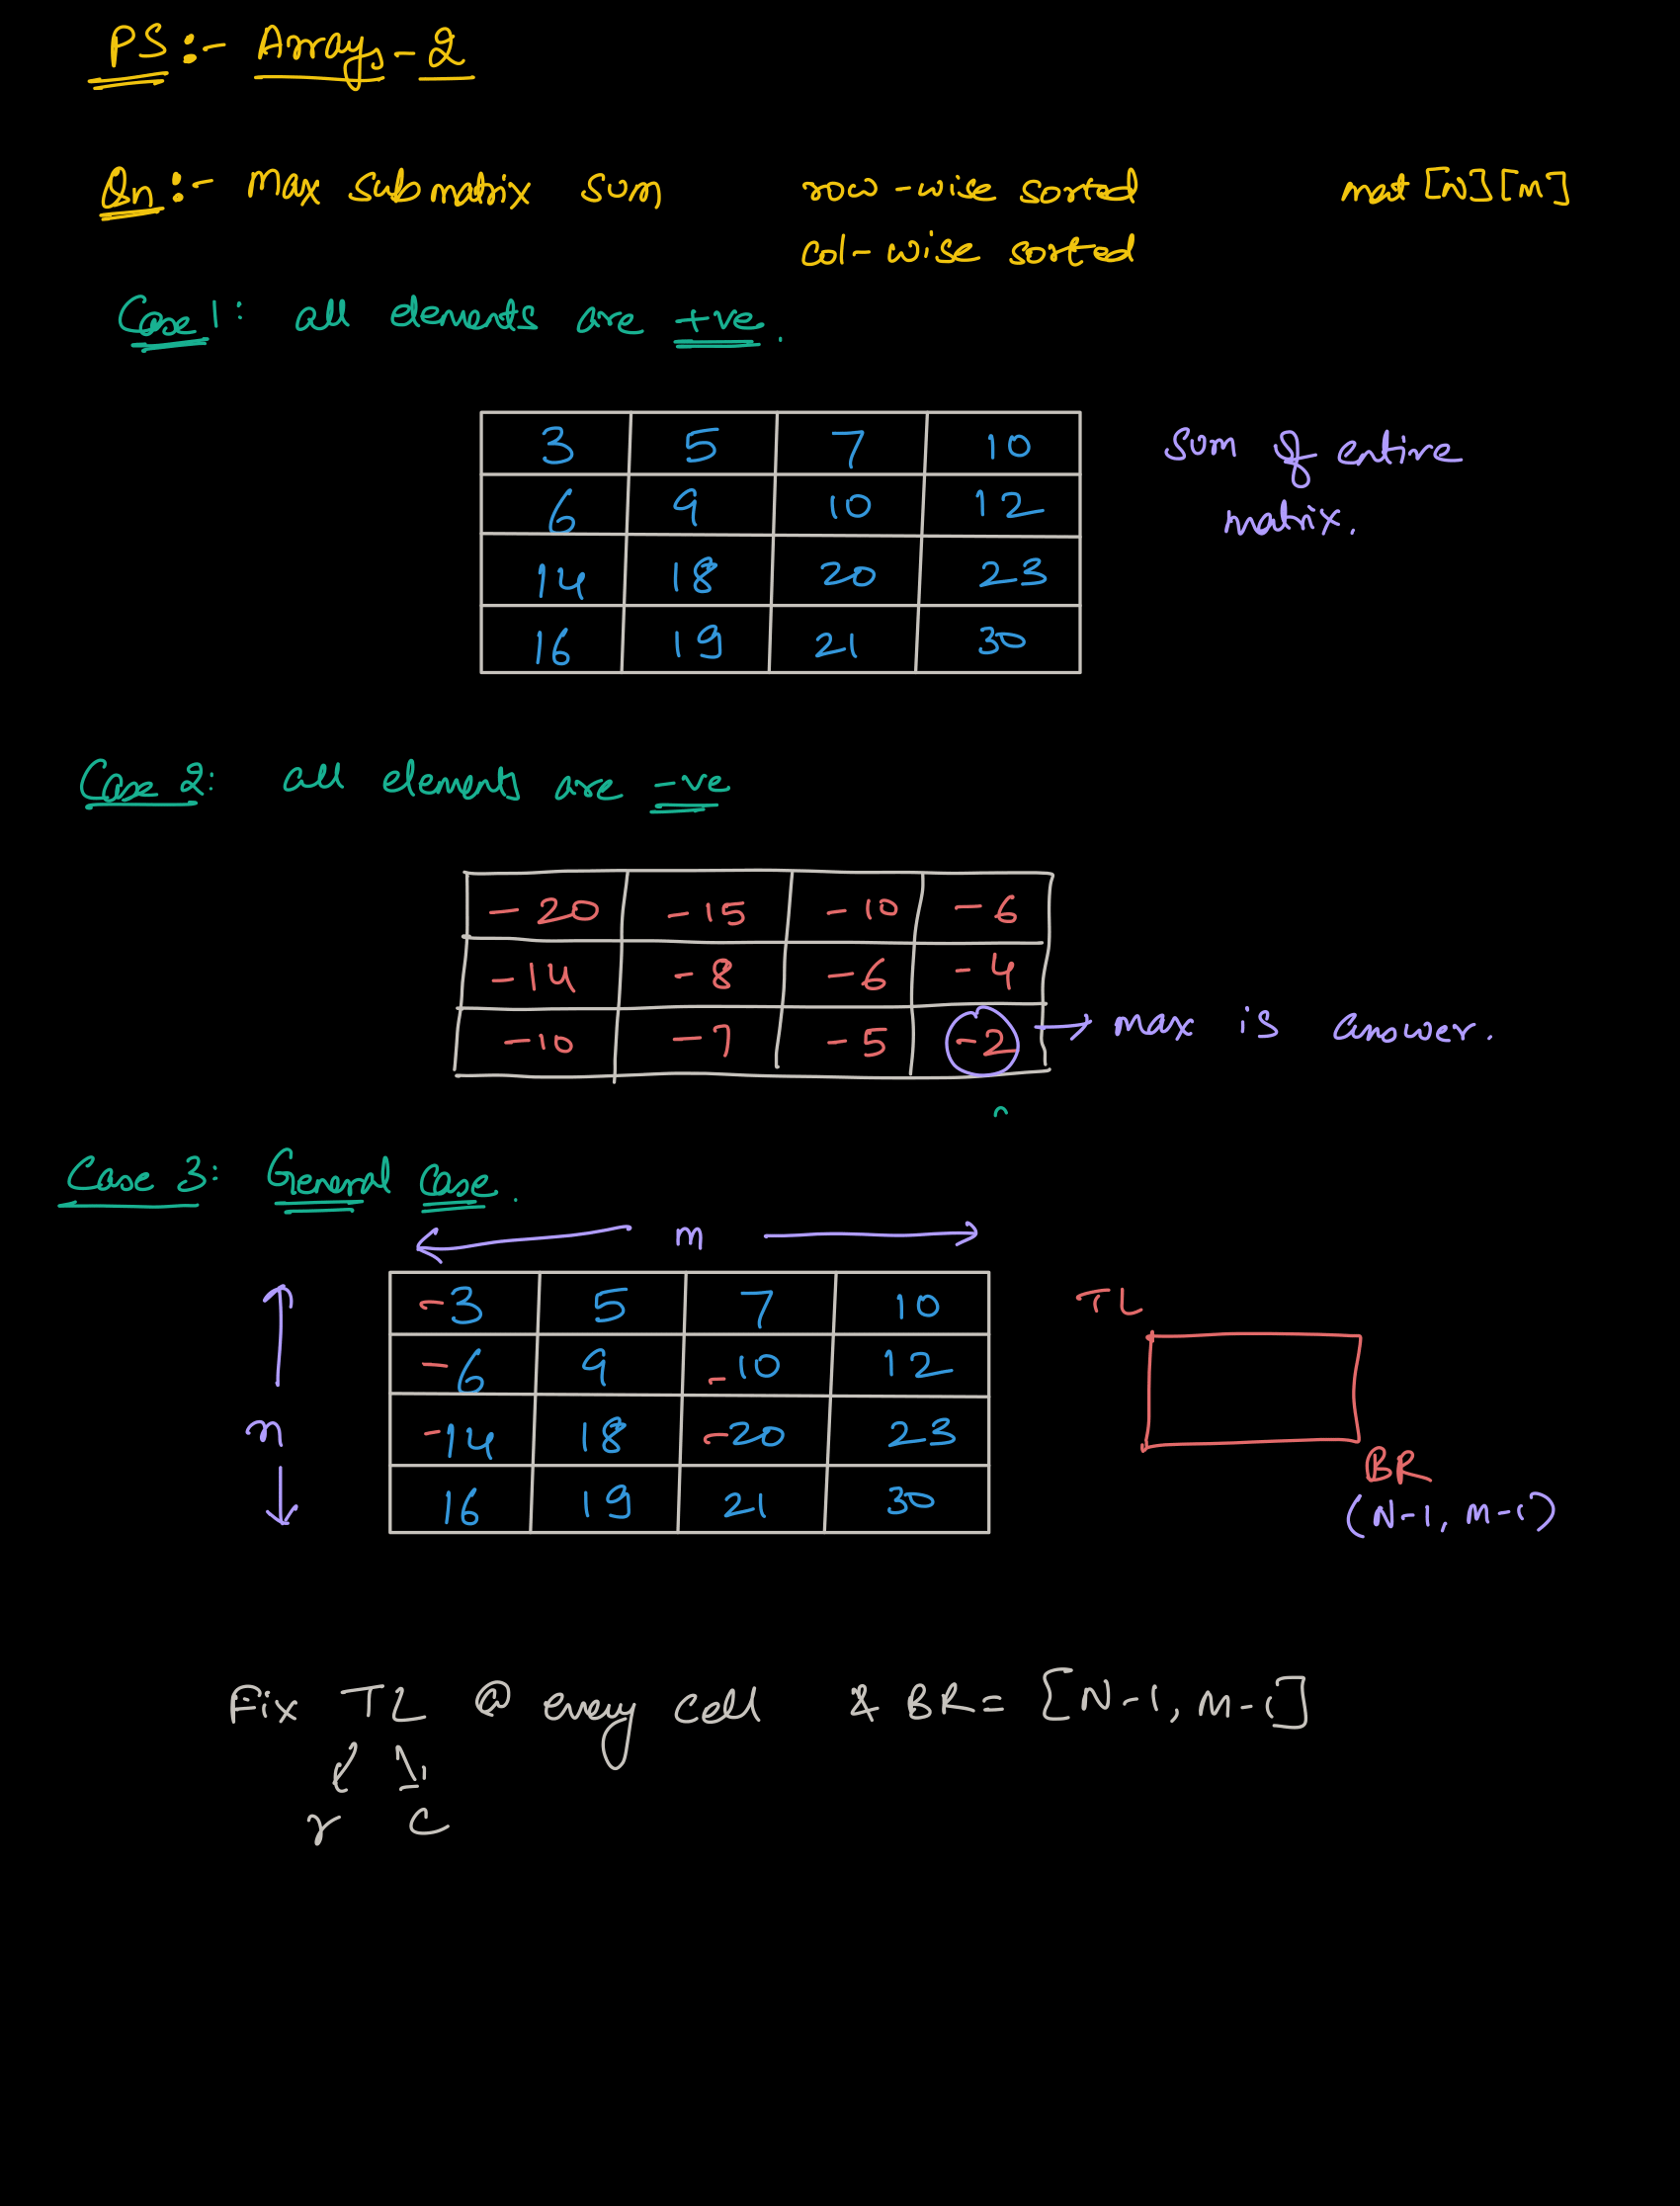 PS :- Arrays - 2
Qn :- Max submatrix sum row-wise sorted mat [N][M]
col-wise sorted
Case 1: all elements are +ve.
3 5 7 10
6 9 10 12
14 18 20 23
16 19 21 30
sum of entire
matrix.
Case 2: all elements are -ve
-20 -15 -10 -6
-14 -8 -6 -4
-10 -7 -5 -2 → max is answer.
Case 3: General Case.
m
n
-3 5 7 10
-6 9 -10 12
-14 18 -20 23
16 19 21 30
TL
BR
(N-1, M-1)
Fix TL @ every cell & BR = [N-1, M-1]
r c